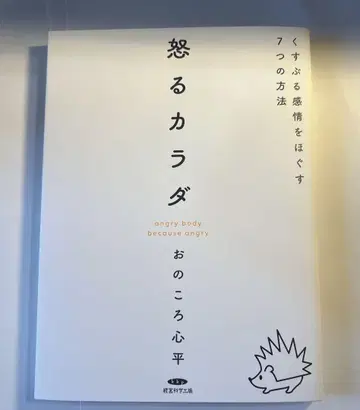 くすぶる感情をほぐす
7つの方法
怒るカラダ
angry body
because angry
おのころ心平
kkp
経営科学出版